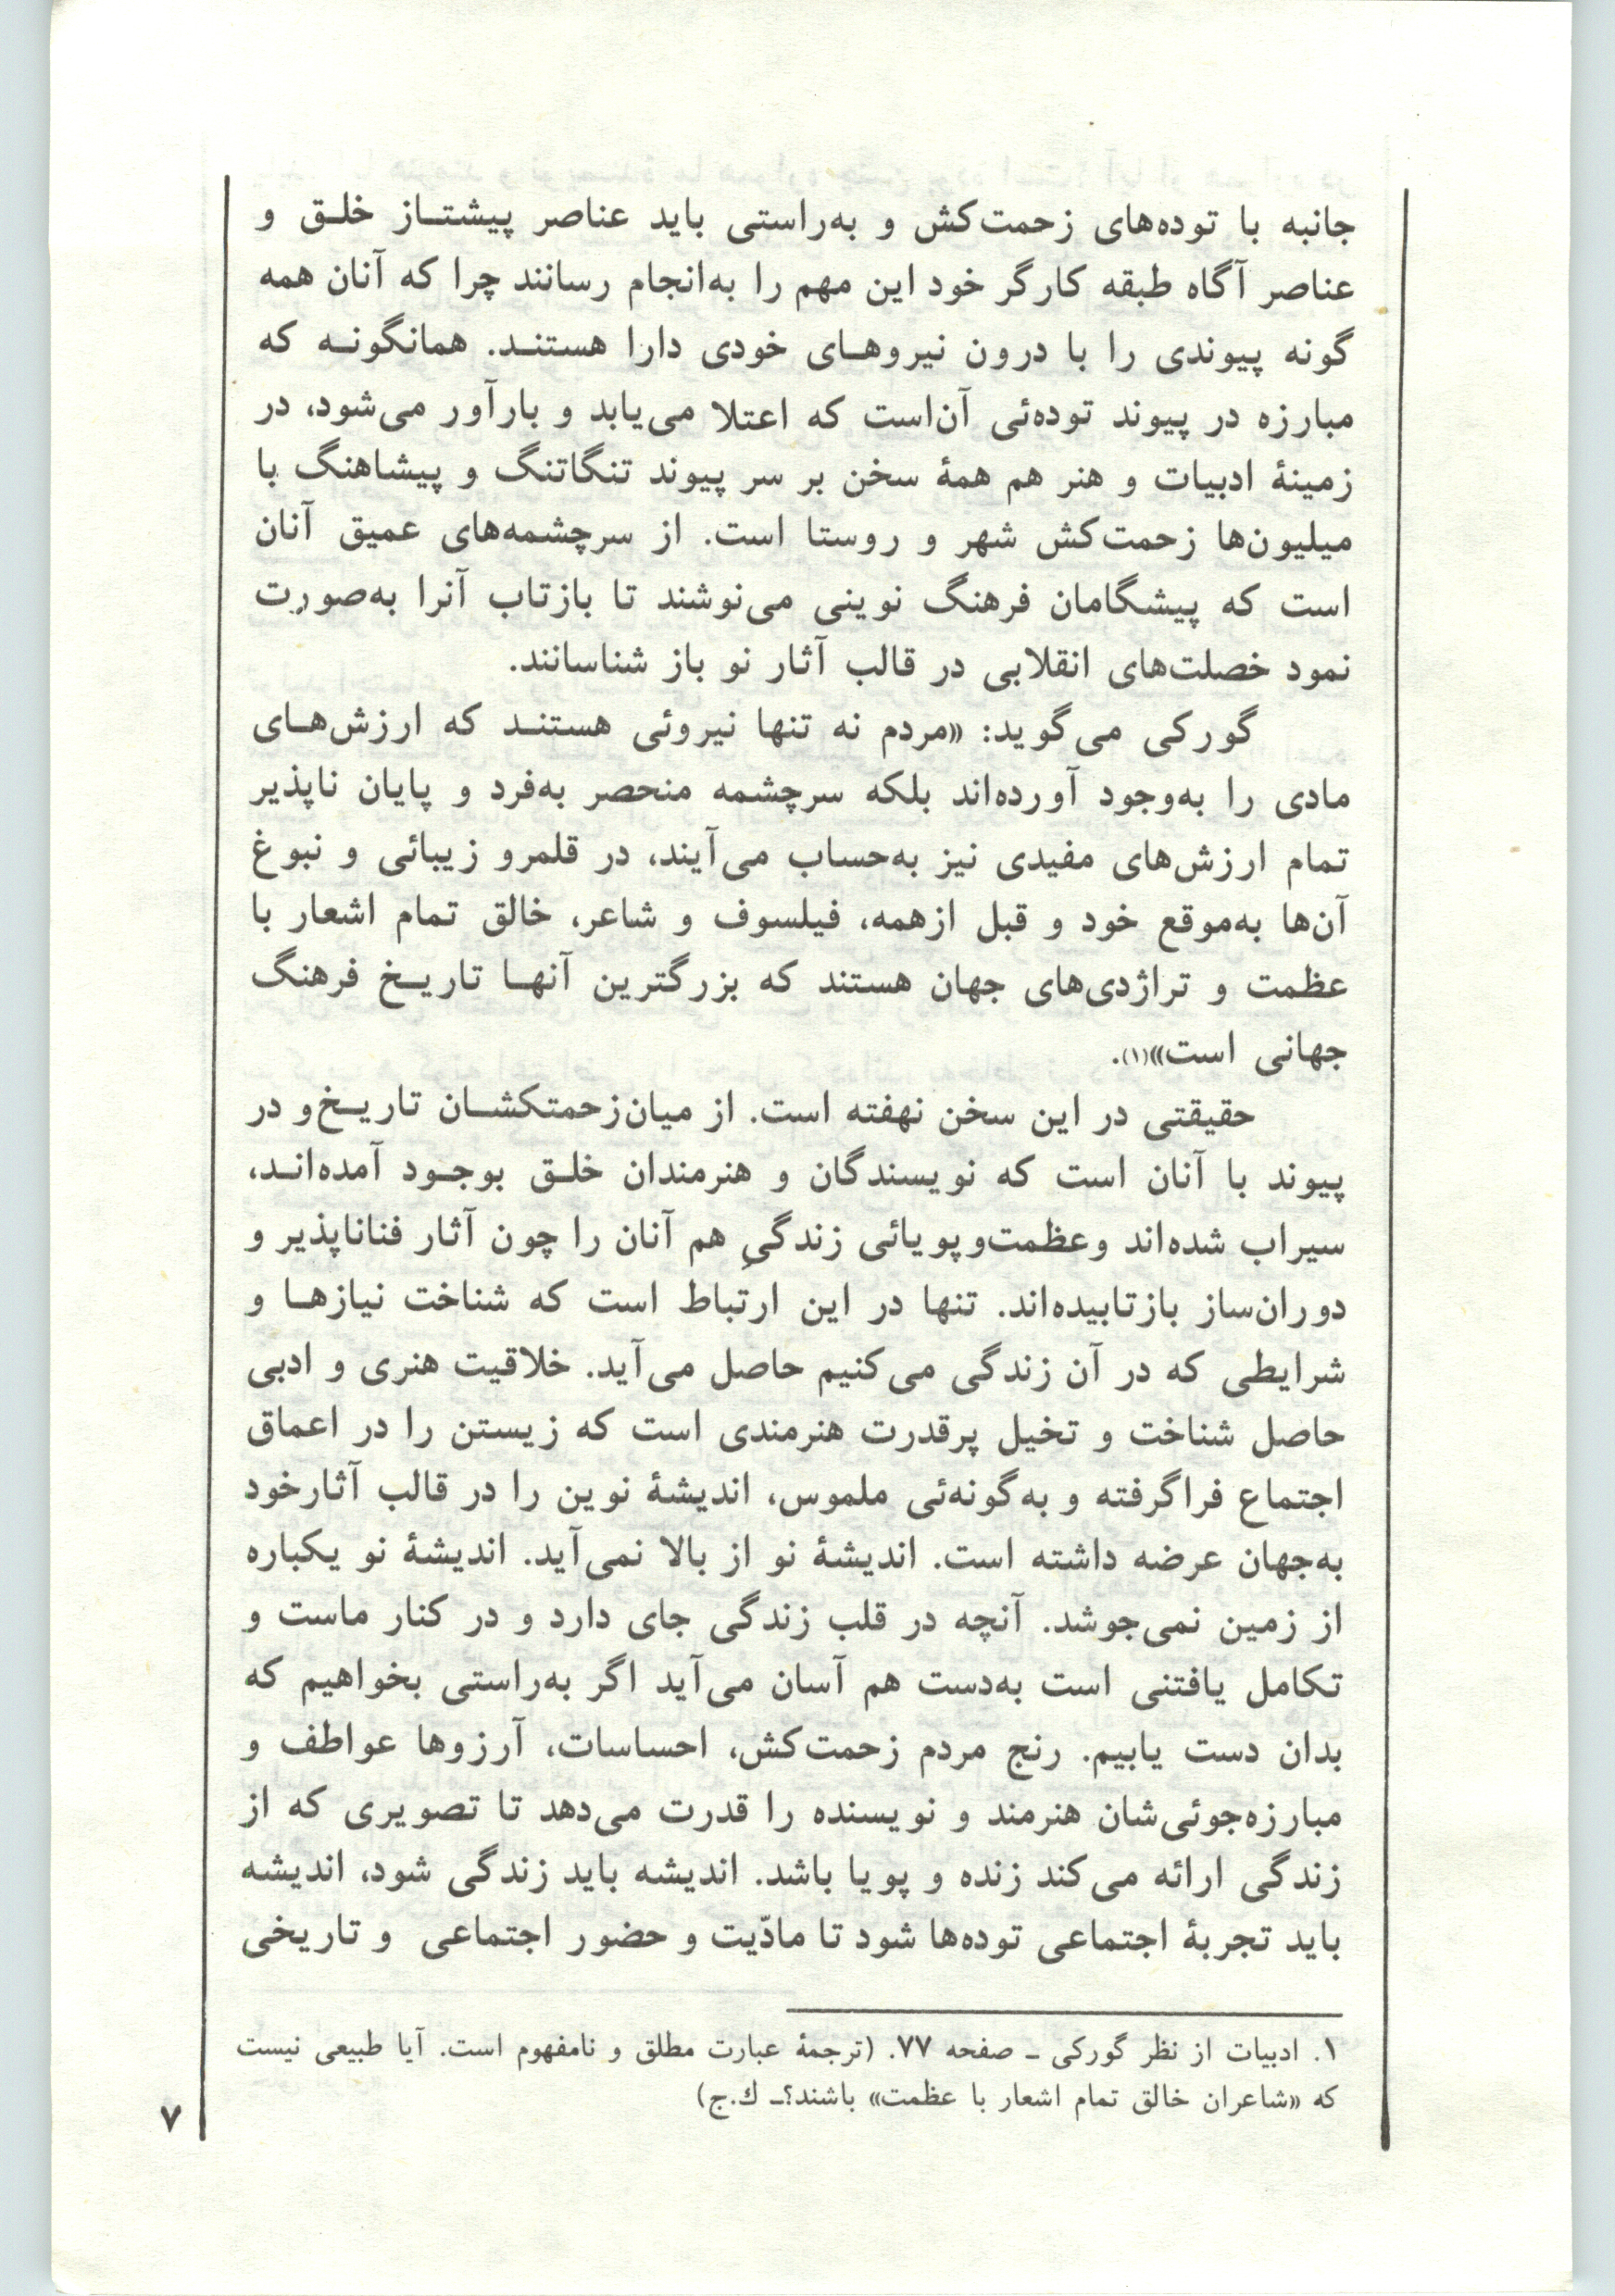 جانبه با توده‌های زحمت‌کش و به‌راستی باید عناصر پیشتـاز خلـق و
عناصر آگاه طبقه کارگر خود این مهم را به‌انجام رسانند چرا که آنان همه
گونه پیوندی را با درون نیروهـای خودی دارا هستنـد. همانگونـه که
مبارزه در پیوند توده‌ئی آن‌است که اعتلا می‌یابد و بارآور می‌شود، در
زمینهٔ ادبیات و هنر هم همهٔ سخن بر سر پیوند تنگاتنگ و پیشاهنگ با
میلیون‌ها زحمت‌کش شهر و روستا است. از سرچشمه‌های عمیق آنان
است که پیشگامان فرهنگ نوینی می‌نوشند تا بازتاب آنرا به‌صورت
نمود خصلت‌های انقلابی در قالب آثار نو باز شناسانند.
گورکی می‌گوید: «مردم نه تنها نیروئی هستنـد که ارزش‌هـای
مادی را به‌وجود آورده‌اند بلکه سرچشمه منحصر به‌فرد و پایان ناپذیر
تمام ارزش‌های مفیدی نیز به‌حساب می‌آیند، در قلمرو زیبائی و نبوغ
آن‌ها به‌موقع خود و قبل ازهمه، فیلسوف و شاعر، خالق تمام اشعار با
عظمت و تراژدی‌های جهان هستند که بزرگترین آنهـا تاریـخ فرهنگ
جهانی است»(۱).
حقیقتی در این سخن نهفته است. از میان‌زحمتکشـان تاریـخ‌و در
پیوند با آنان است که نویسندگان و هنرمندان خلـق بوجـود آمده‌انـد،
سیراب شده‌اند وعظمت‌وپویائی زندگیِ هم آنان را چون آثار فناناپذیر و
دوران‌ساز بازتابیده‌اند. تنها در این ارتباط است که شناخت نیازهـا و
شرایطی که در آن زندگی می‌کنیم حاصل می‌آید. خلاقیت هنری و ادبی
حاصل شناخت و تخیل پرقدرت هنرمندی است که زیستن را در اعماق
اجتماع فراگرفته و به‌گونه‌ئی ملموس، اندیشهٔ نوین را در قالب آثارخود
به‌جهان عرضه داشته است. اندیشهٔ نو از بالا نمی‌آید. اندیشهٔ نو یکباره
از زمین نمی‌جوشد. آنچه در قلب زندگی جای دارد و در کنار ماست و
تکامل یافتنی است به‌دست هم آسان می‌آید اگر به‌راستی بخواهیم که
بدان دست یابیم. رنج مردم زحمت‌کش، احساسات، آرزوها عواطف و
مبارزه‌جوئی‌شان هنرمند و نویسنده را قدرت می‌دهد تا تصویری که از
زندگی ارائه می‌کند زنده و پویا باشد. اندیشه باید زندگی شود، اندیشه
باید تجربهٔ اجتماعی توده‌ها شود تا مادّیت و حضور اجتماعی و تاریخی
۱. ادبیات از نظر گورکی ـ صفحه ۷۷. (ترجمهٔ عبارت مطلق و نامفهوم است. آیا طبیعی نیست
که «شاعران خالق تمام اشعار با عظمت» باشند؟ـ ك.ج)
۷